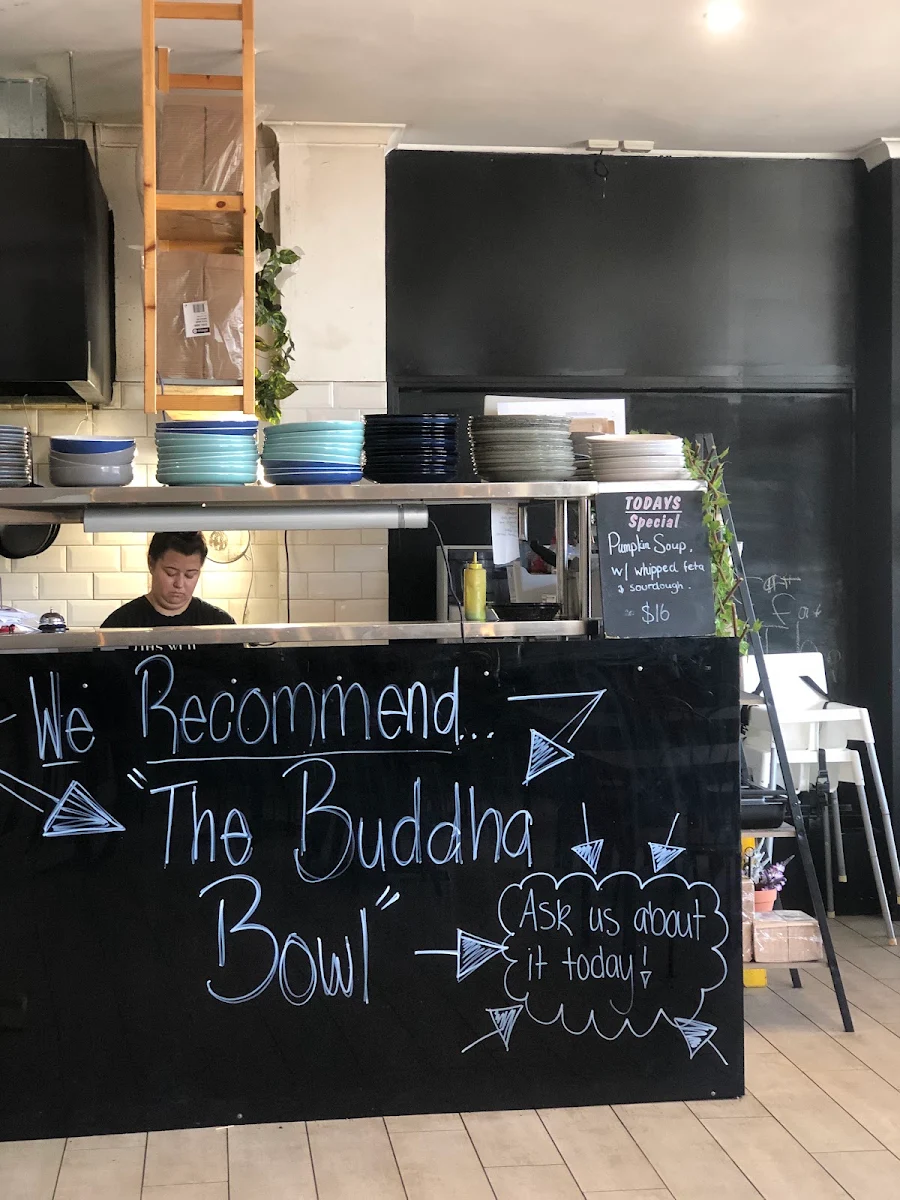 TODAYS
Special
Pumpkin Soup.
w/ whipped feta
& sourdough.
$16
We Recommend...
"The Buddha
Bowl"
Ask us about
it today!